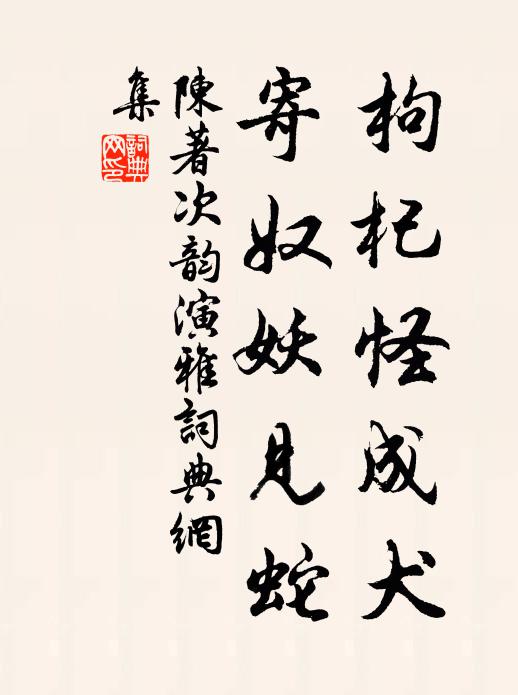 枸杞怪成犬
寄奴妖見蛇
陳著次韵演雅詞典網
集
詞典網印